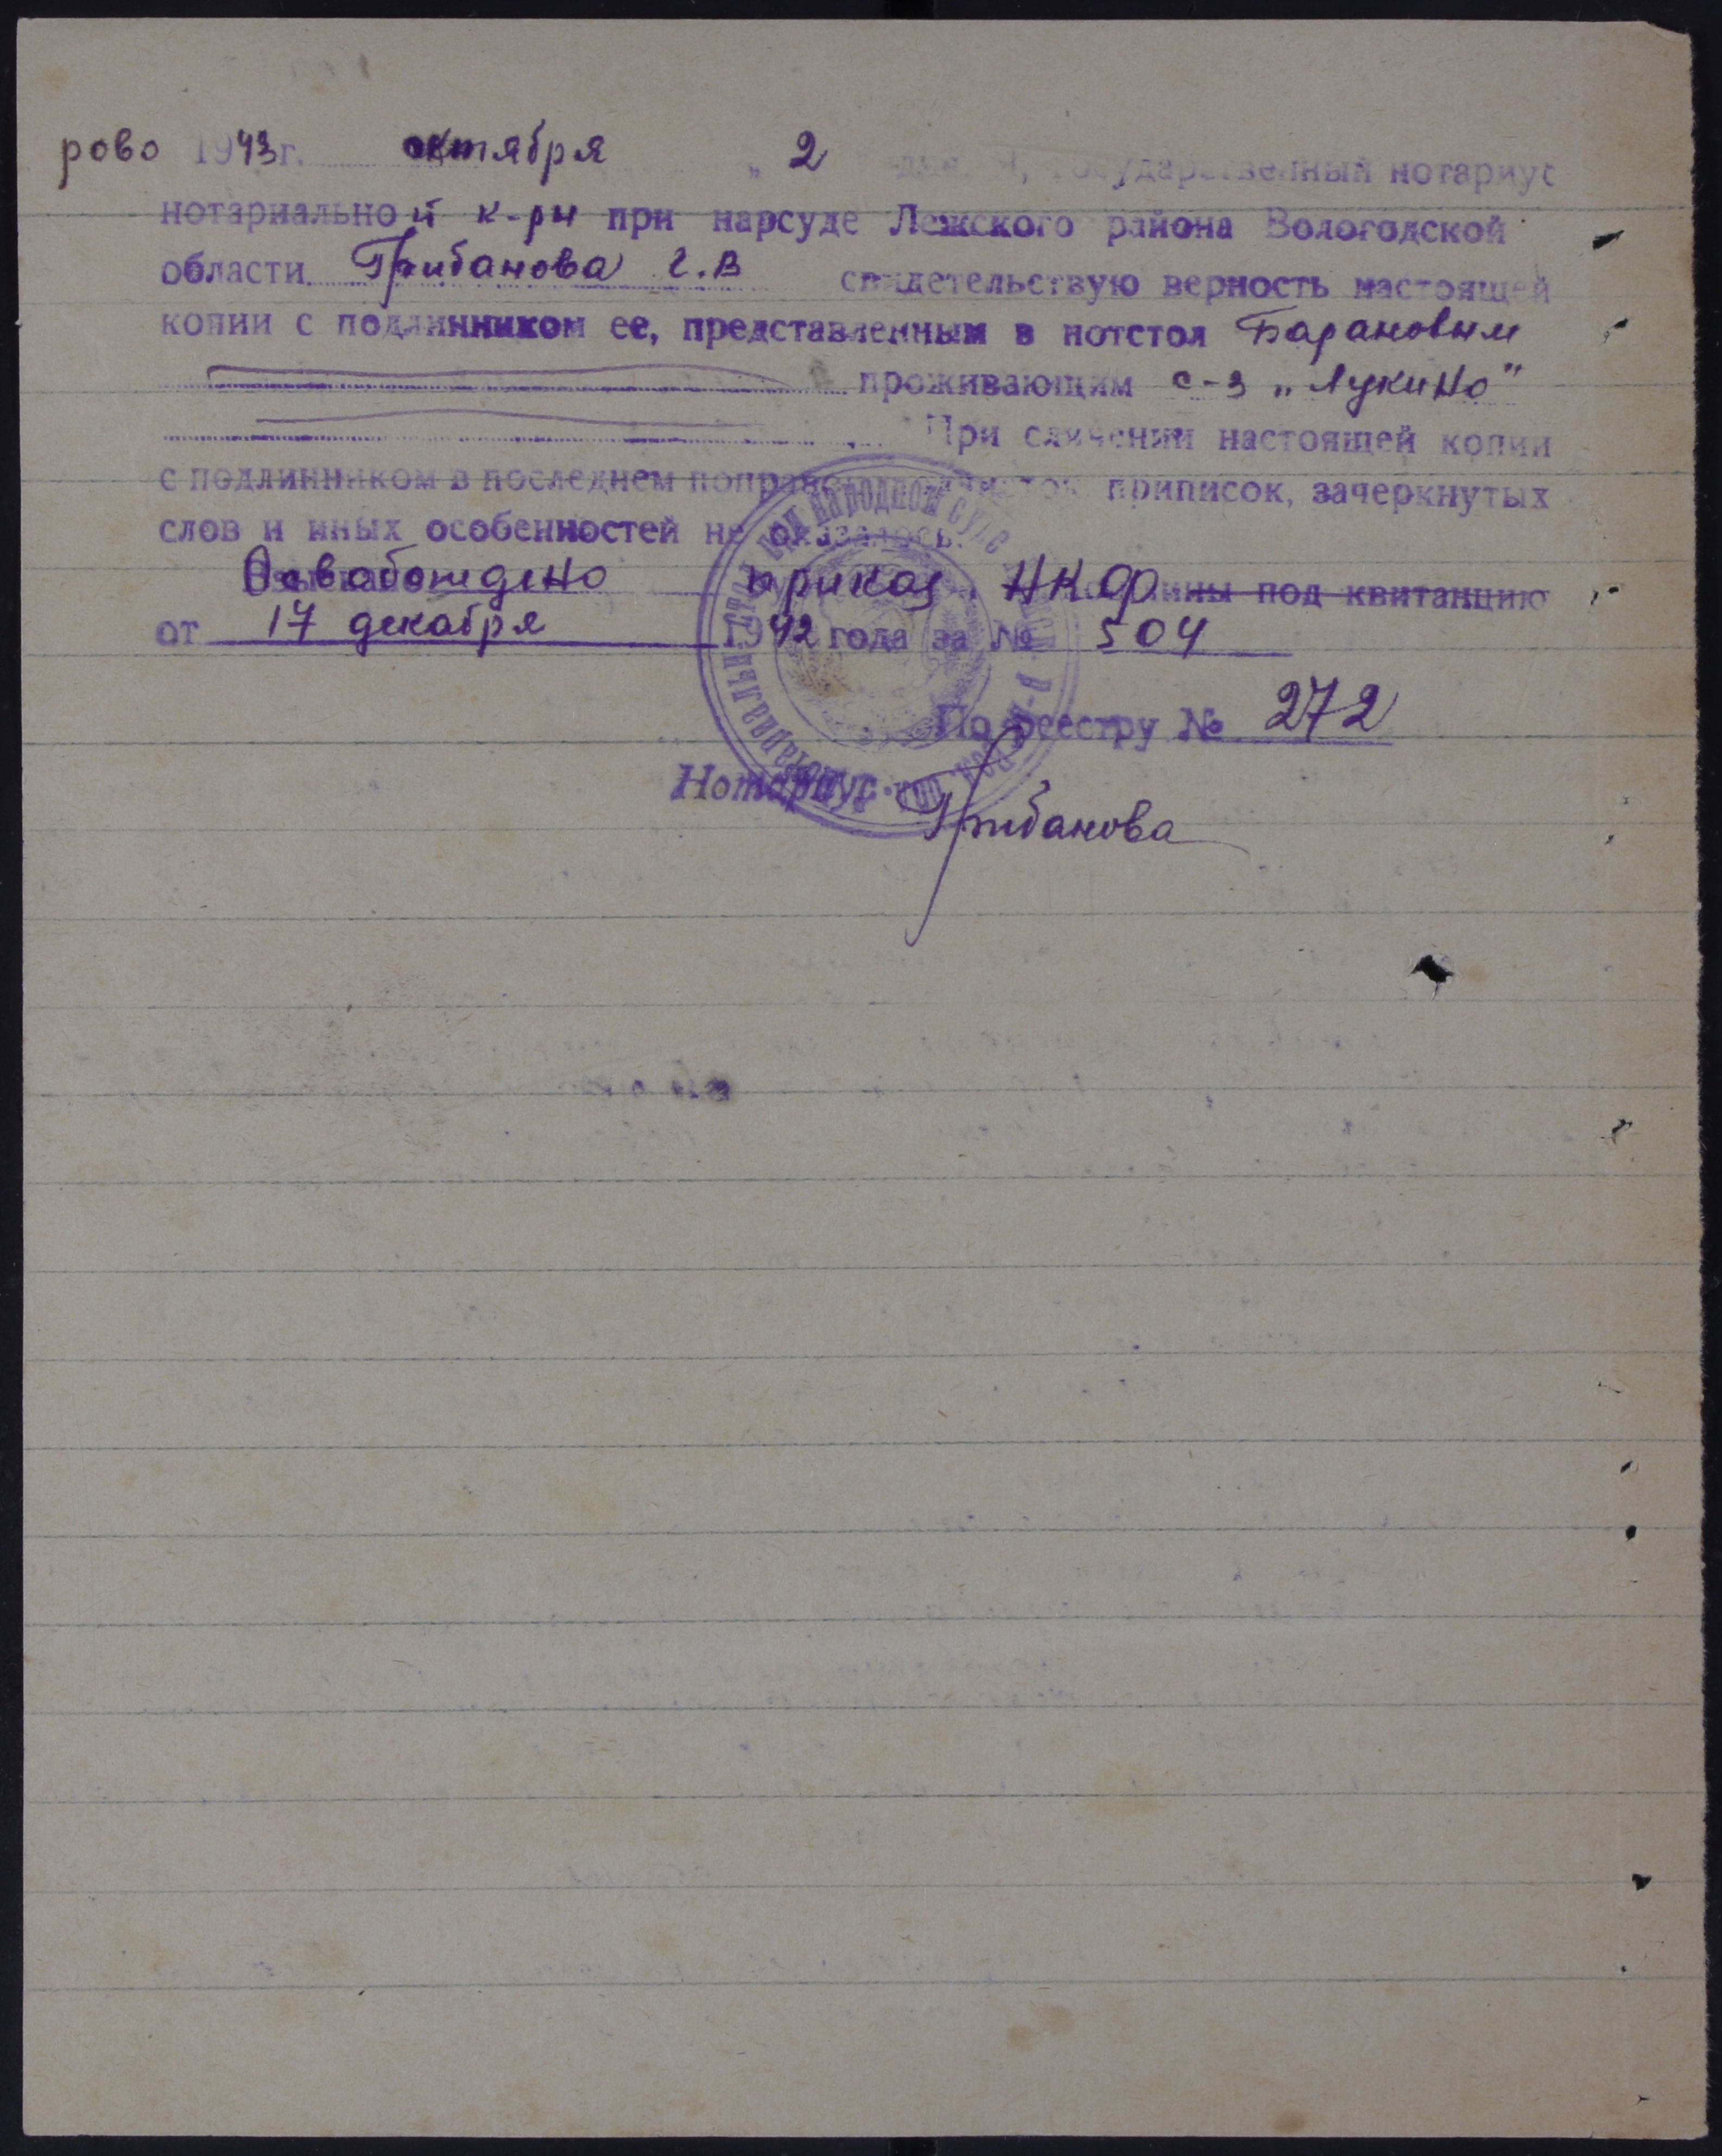 рово 1943г. октября „ 2 дня Я, государственный нотариус
нотариальной к-ры при нарсуде Лежского района Вологодской
области Грибанова Г.В свидетельствую верность настоящей
копии с подлинником ее, представленным в нотстол Барановым
проживающим с-з „Лукино"
При сличении настоящей копии
с подлинником в последнем поправок приписок, зачеркнутых
слов и иных особенностей не оказалось.
Освобождено приказ. НКФ под квитанцию
от 17 декабря 1942 года за № 504
По реестру № 272
Нотариус
Грибанова